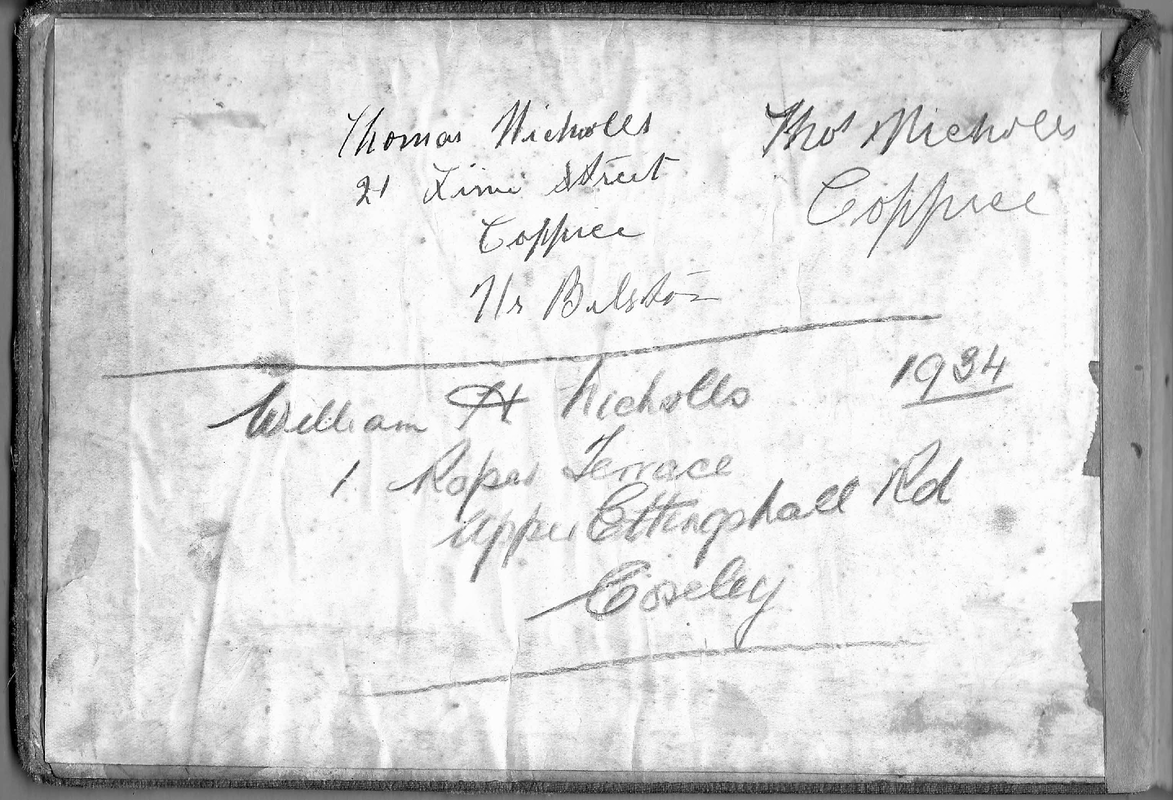 Thomas Nicholls
21 Lime Street
Coppice
Nr Bilston
Thos Nicholls
Coppice
1934
William H Nicholls
1 Ropers Terrace
Upper Ettingshall Rd
Coseley